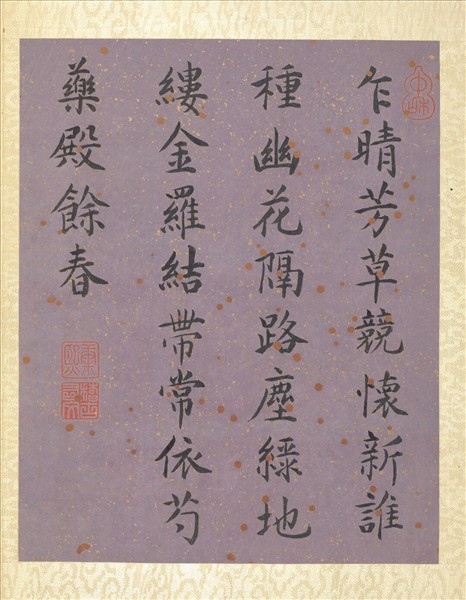 乍晴芳草競懷新誰
種幽花隔路塵綠地
縷金羅結帶常依芍
藥殿餘春